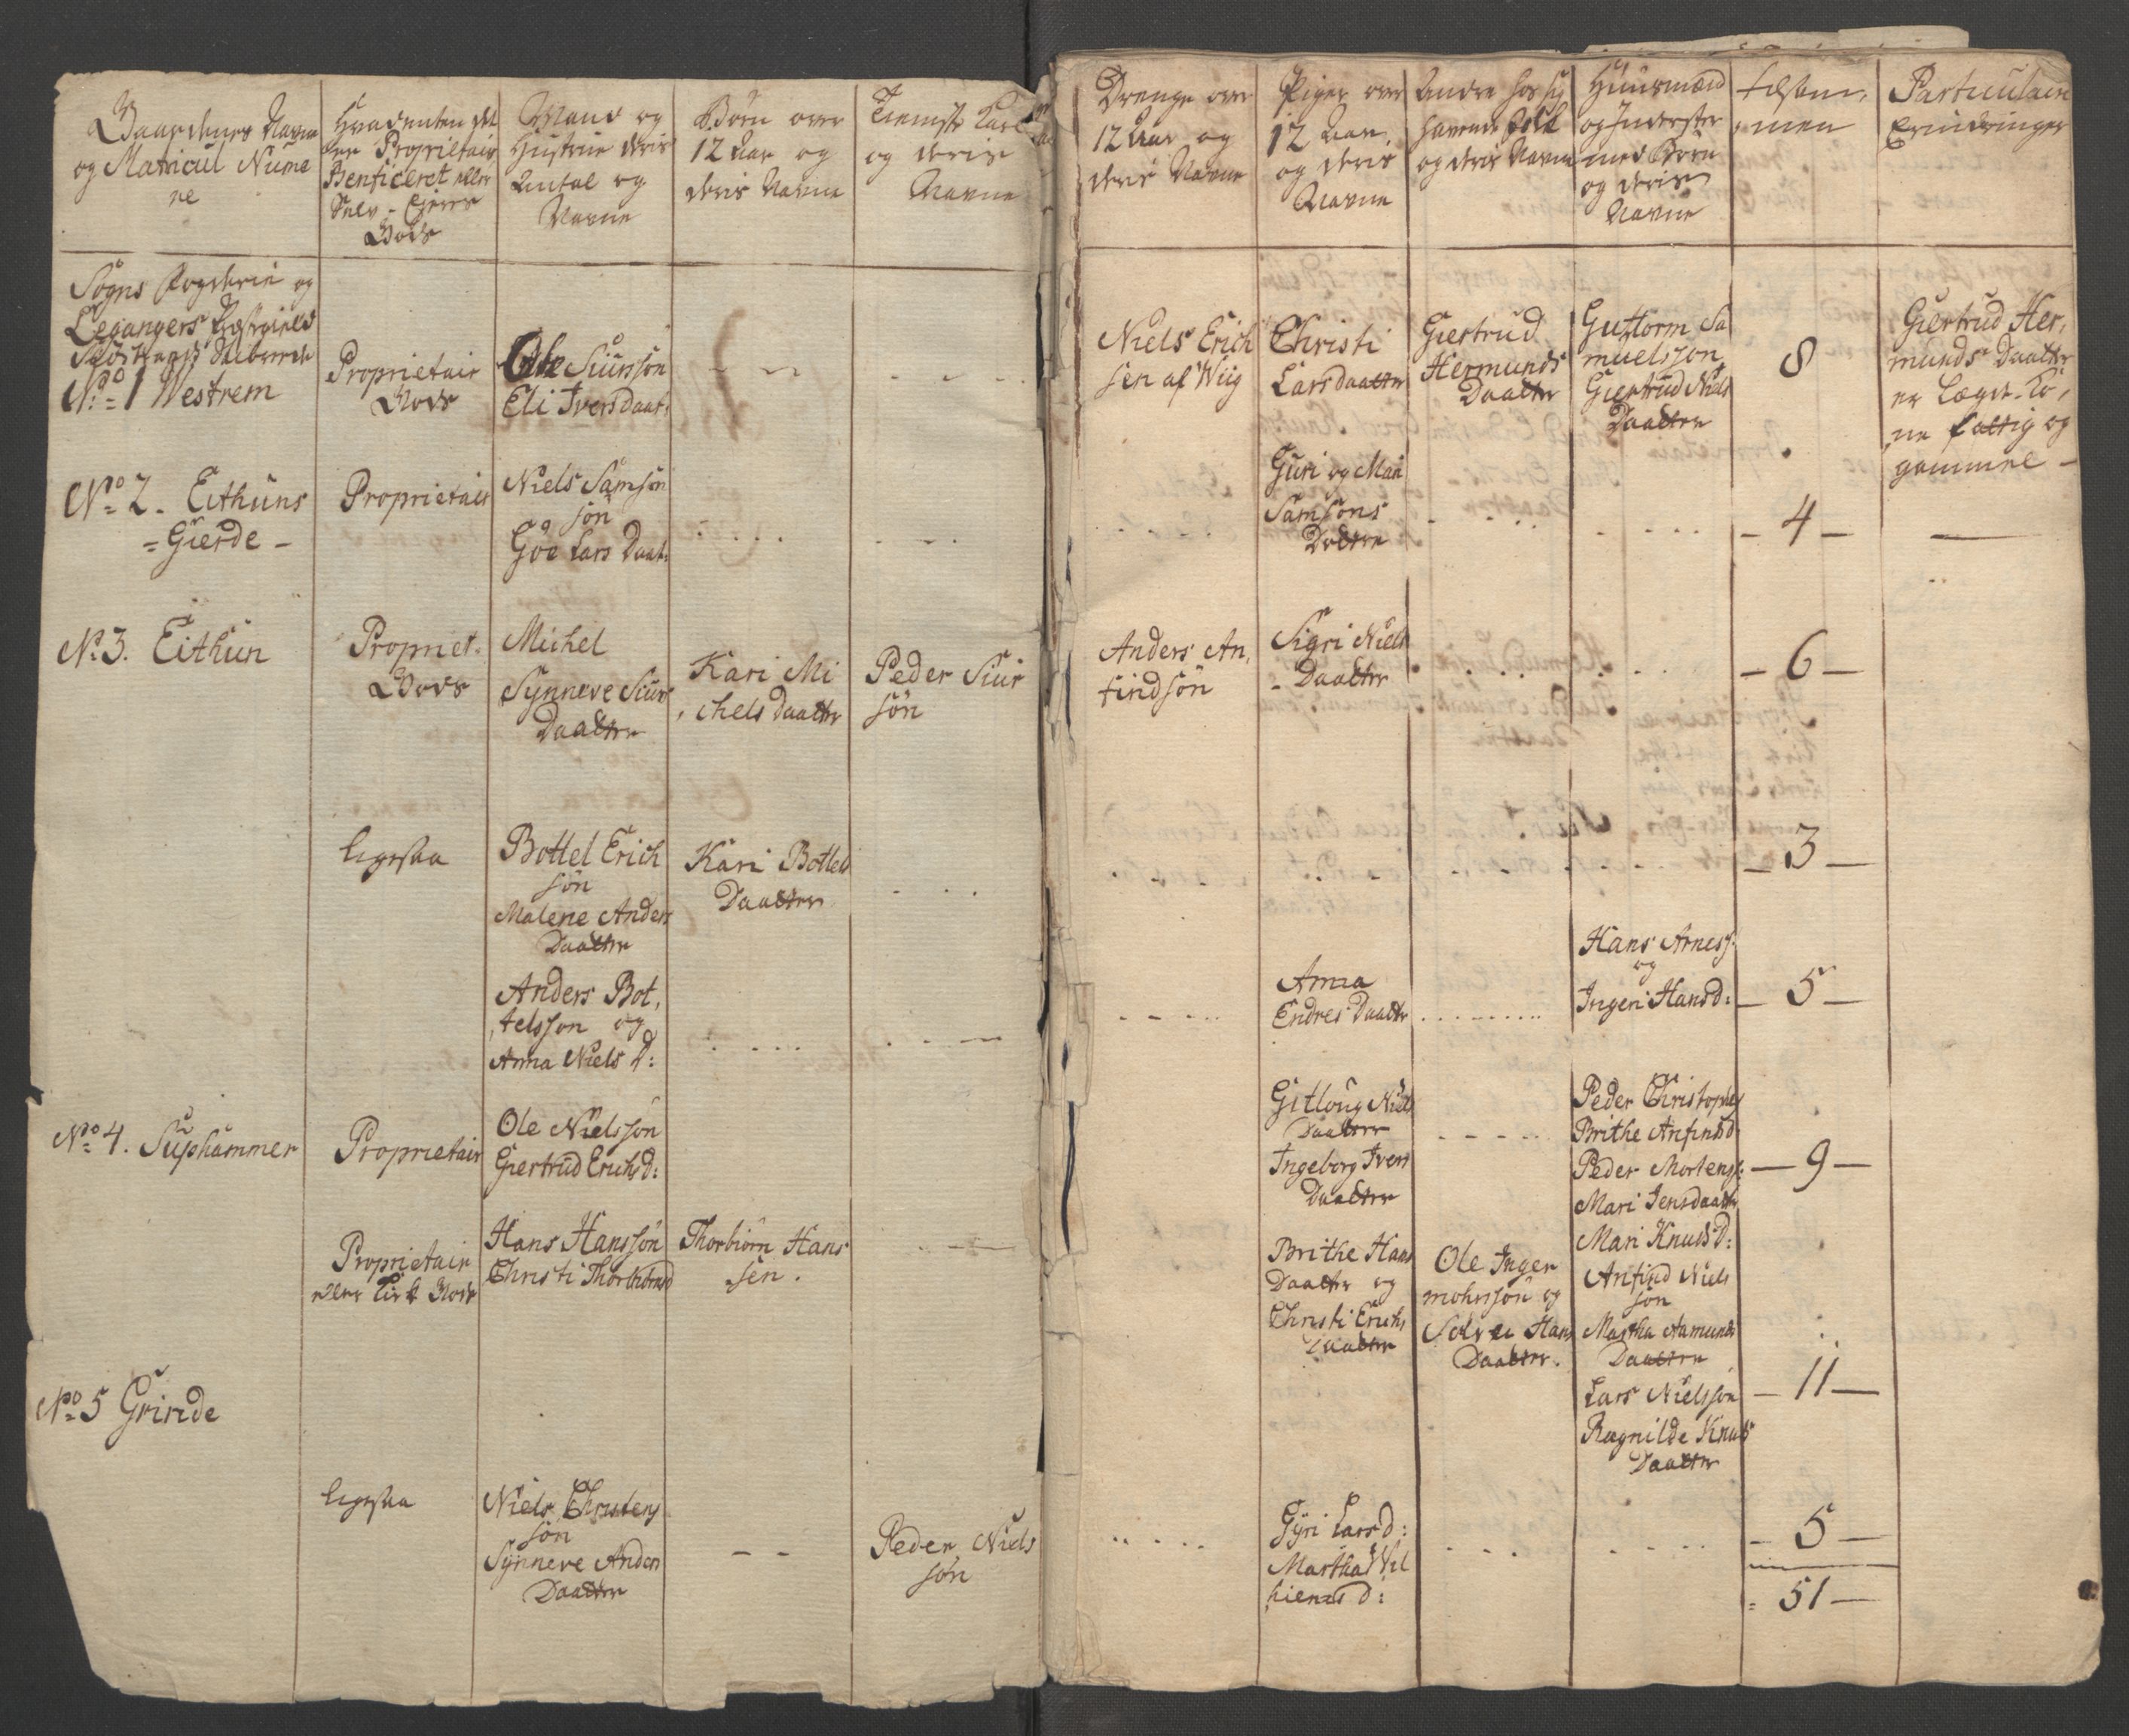 Gaardenes Navne
og Matricul Nume
re
Hvad enten det
er Proprietair
Benficeret eller
Selv-Ejeres
Gods
Mand og
Hustrue deris
Antal og
Navne
Børn over
12 Aar og
deris Navne
Tieniste Karl
og deris
Navne
Drenge over
12 Aar og
deris Navne
Piger over
12 Aar
og deris
Navne
Andre hos sig
havende folk
og deris Navne
Huusmænd
og Inderster
med Børn
og deris
Navne
tilsam,
men
Particulaire
Erindringer
Sogns Fogderie og
Leganger
No 1 Westrem
Proprietair
Gods
Ole Siursøn
Eli Iversdaat:
Niels Erich
sen af Wiig
Christi
Larsdaatter
Giertrud
Hermunds
Daatter
Guttorm Sa
muelssøn
Giertrud Niels
Daatter
8
Giertrud Her,
munds Daatter
er Lægds-Ko,
ne fattig og
gammel -
No 2. Eithuns
= Gierde -
Proprietair
Niels Samson
søn
Göe Lars Daat:
Guri og Mari
Samsons
Døttre
- 4 -
No 3. Eithun
Propriet.
Gods
Michel
Synneve Siurs
Daatter
Kari Mi
chels Daatter
Peder Siur
søn
Anders An,
findsøn
Sigri Niels
- Daatter
- 6 -
ligesaa
Bottel Erich
søn
Malene Anders
Daatter
Kari Bottels
Daatter
- 3 -
Anders Bot,
telsson og
Anna Niels D:
Anna
Endres Daatter
Hans Arness:
og
Ingeri Hansd:
- 5 -
No 4. Suphammer
Proprietair
Ole Nielssøn
Giertrud Erichsd:
Gitloug Niels
Daatter
Ingeborg Ivers
Daatter
Peder Christophers
Brithe Anfindsd
Peder Mortens:
Mari Jensdaatter
Mari Knudsd:
- 9 -
Proprietair
eller Kirke Gods
Hans Hanssøn
Christi
Thorbiørn Hans
sen.
Brithe Hans
Daatter og
Christi Erichs
Daatter
Ole Inger
mohrssøn og
Solvei Hans
Daatter.
Anfind Niels
søn
Martha Aamunds
Daatter
Lars Nielssøn
Ragnilde Knuds
Daatter
- 11 -
No 5 Grinde
ligesaa
Niels Christens
søn
Synneve Anders
Daatter
Peder Niels
søn
Gÿri Larsd:
Martha
- 5 -
= 51 -